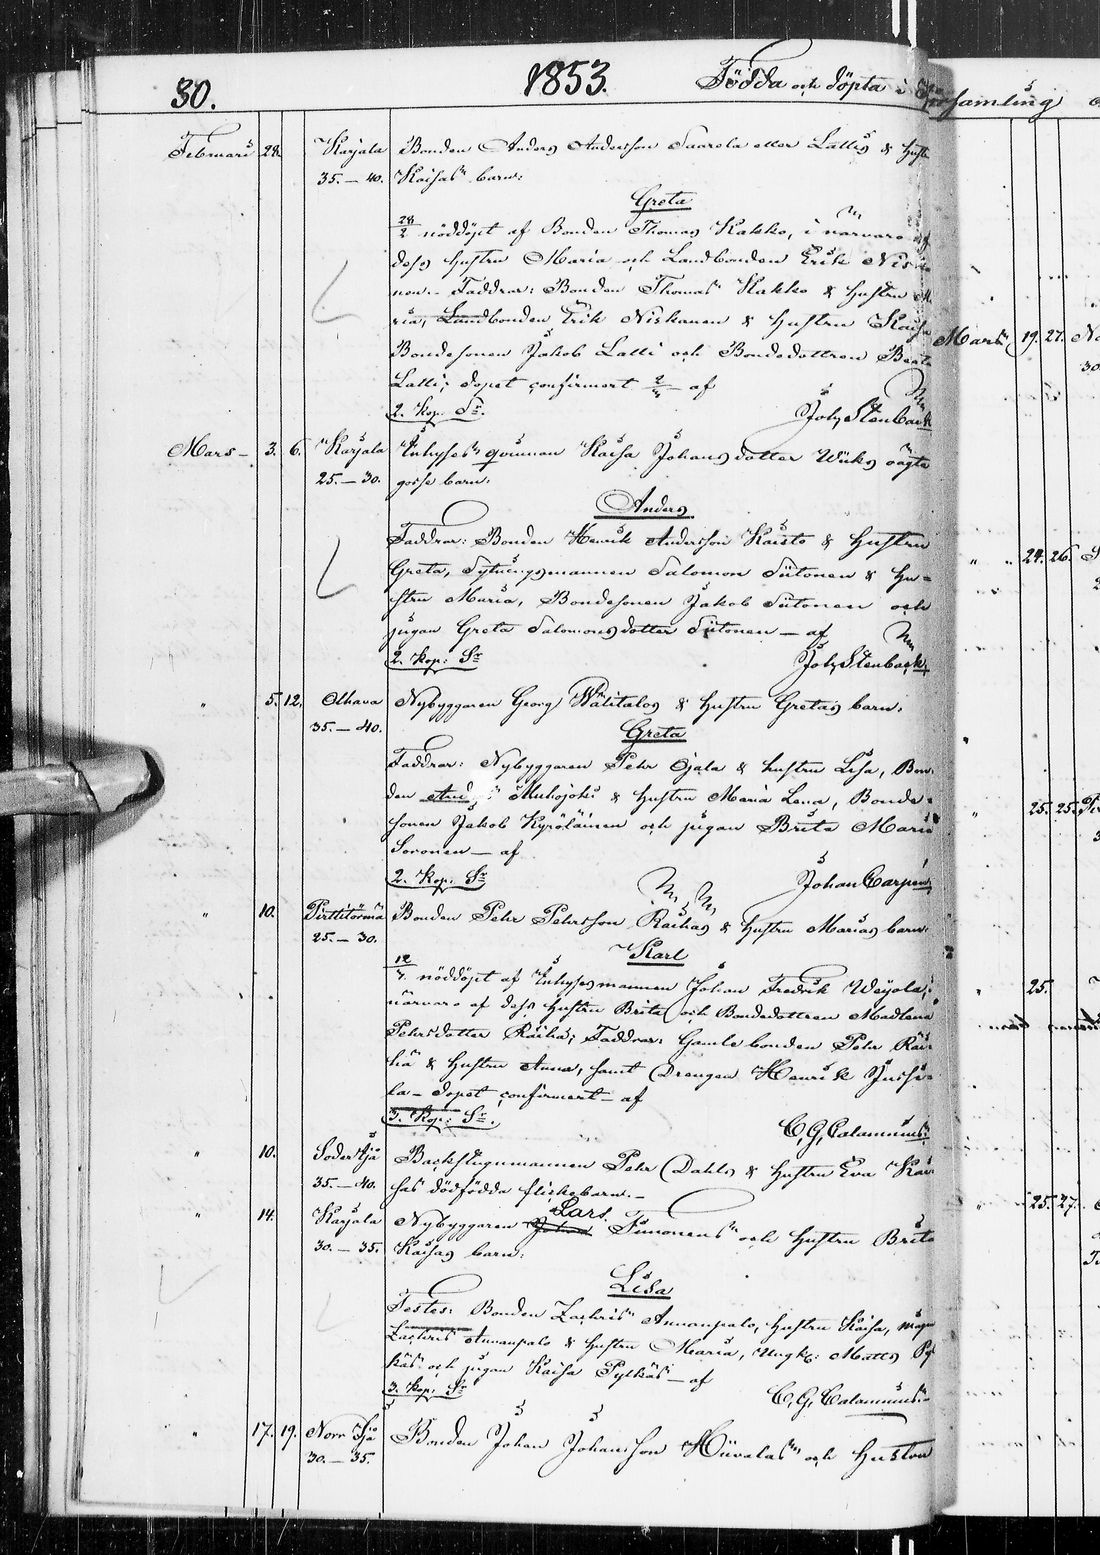 30.
1853.
Födda och döpta i
samling
Februari 28. Karjala Bonden Anders Andersson Saarela eller Lallis & hustr
35.–40. Kaisas barn:
Greta
28/2 nöddöpt af Bonden Thomas Kakko, i närvaro af
dess hustru Maria och Landbonden Erik Niska
nen.– Faddrar: Bonden Thomas Kakko & hustru Ma
ria, Landbonden Erik Niskanen & hustru Kaisa
Bondesonen Jakob Lalli och Bondedottren Beata
Lalli; dopet confirmert 2/3 – af
2. Kop: Sr. Joh. Stenback
Mars – 3. 6. Karjala Inhyses qvinnan Kaisa Johans dotter Wiiks oägta
25.–30. gosse barn:
Anders
Faddrar: Bonden Henrik Andersson Kaisto & hustru
Greta, Sytningsmannen Salomon Siitonen & hu=
stru Maria, Bondesonen Jakob Siitonen och
pigan Greta Salomonsdotter Siitonen – af
2. Kop: Sr Joh. Stenback
" 5. 12. Olhava Nybyggaren Georg Wälitalos & hustru Gretas barn.
35.–40. Greta
Faddrar: Nybyggaren Pehr Ojala & hustru Lisa, Bon-
den Muhojoki & hustru Maria Lena, Bonde-
sonen Jakob Kyröläinen och pigan Brita Maria
Soronen – af
2. Kop: Sr Johan Carpén
" 10. Pirttitörmä Bonden Pehr Pehrsson Räihäs & hustru Marias barn:
25.–30. Karl
12/3 nöddöpt af Inhysesmannen Johan Fredrik Weyola, i
närvaro af dess hustru Brita och Bondedottren Madlena
Pehrsdotter Räihä; Faddrar: Gamle bonden Pehr Räi-
hä & hustru Anna, samt Drengen Henrik Jussi-
la – dopet confirmert – af
3. Kop: Sr. C. G. Calamnius
" 10. Söder Ijo Backstugumannen Pehr Dahls & hustru Eva Kai-
35.–40. sas dödfödda flickebarn. –
" 14. Karjala Nybyggaren Johan Lars Timonens och hustru Brita
30.–35. Kaisas barn:
Lisa
Testes: Bonden Zachris Annanpalo, hustru Kaisa,
Zachris Annanpalo & hustru Maria, Ungk: Matts Pyl
käs och pigan Kaisa Pylkäs – af
3. Kop: Sr C. G. Calamnius.
" 17. 19. Norr Ijo Bonden Johan Johansson Hiivalas och hustru
30.–35.
Mars 19. 27.
30.
" " 24. 26.
" 25. 25.
" 25.
barn
" 25. 27.